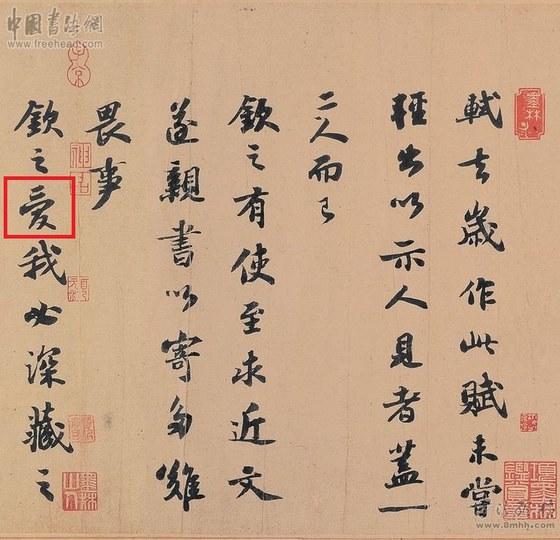 軾去歲作此賦未嘗
輕出以示人見者蓋一
二人而已
欽之有使至求近文
遂親書以寄多難
畏事
欽之愛我必深藏之
中国書法網
www.freehead.com
www.8mhh.com